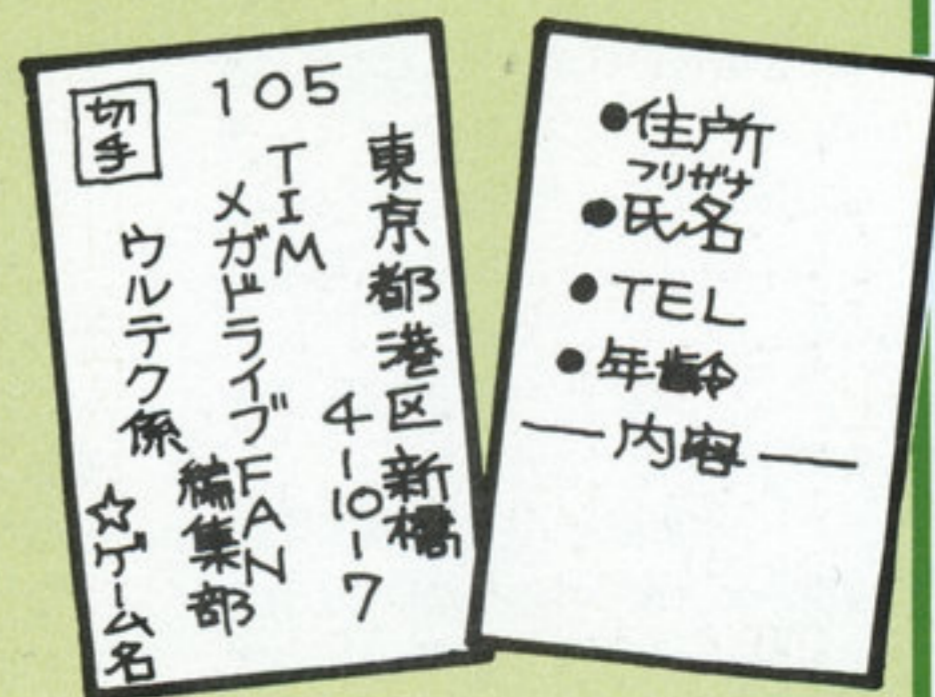 切手
105
東京都港区新橋
4-10-7
TIM
メガドライブFAN
編集部
ウルテク係
☆ゲーム名
●住所
フリガナ
●氏名
●TEL
●年齢
―内容―